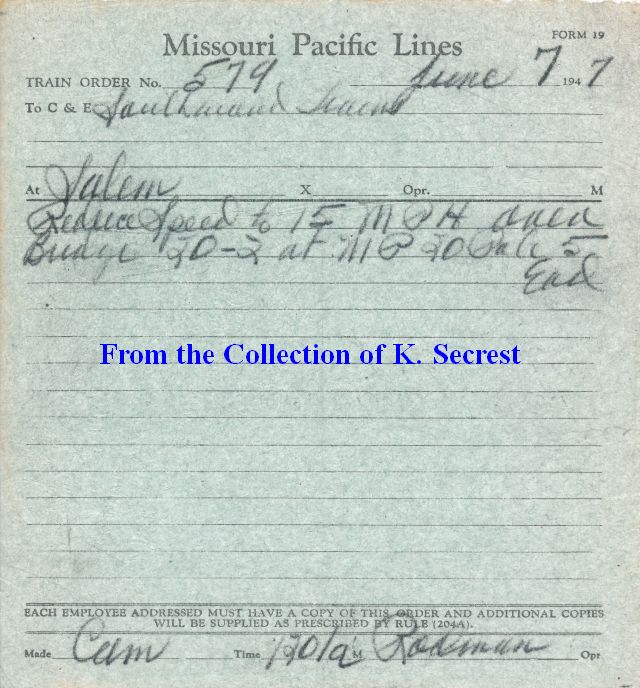 FORM 19
Missouri Pacific Lines
TRAIN ORDER No. 579 June 7 1947
To C & E Southward Trains
At Salem X Opr. M
Reduce Speed to 15 MPH over
Bridge 20-2 at MP 20 Pole 5
End
From the Collection of K. Secrest
EACH EMPLOYEE ADDRESSED MUST HAVE A COPY OF THIS ORDER AND ADDITIONAL COPIES
WILL BE SUPPLIED AS PRESCRIBED BY RULE (204A).
Made Com Time 1201a M Rodman Opr